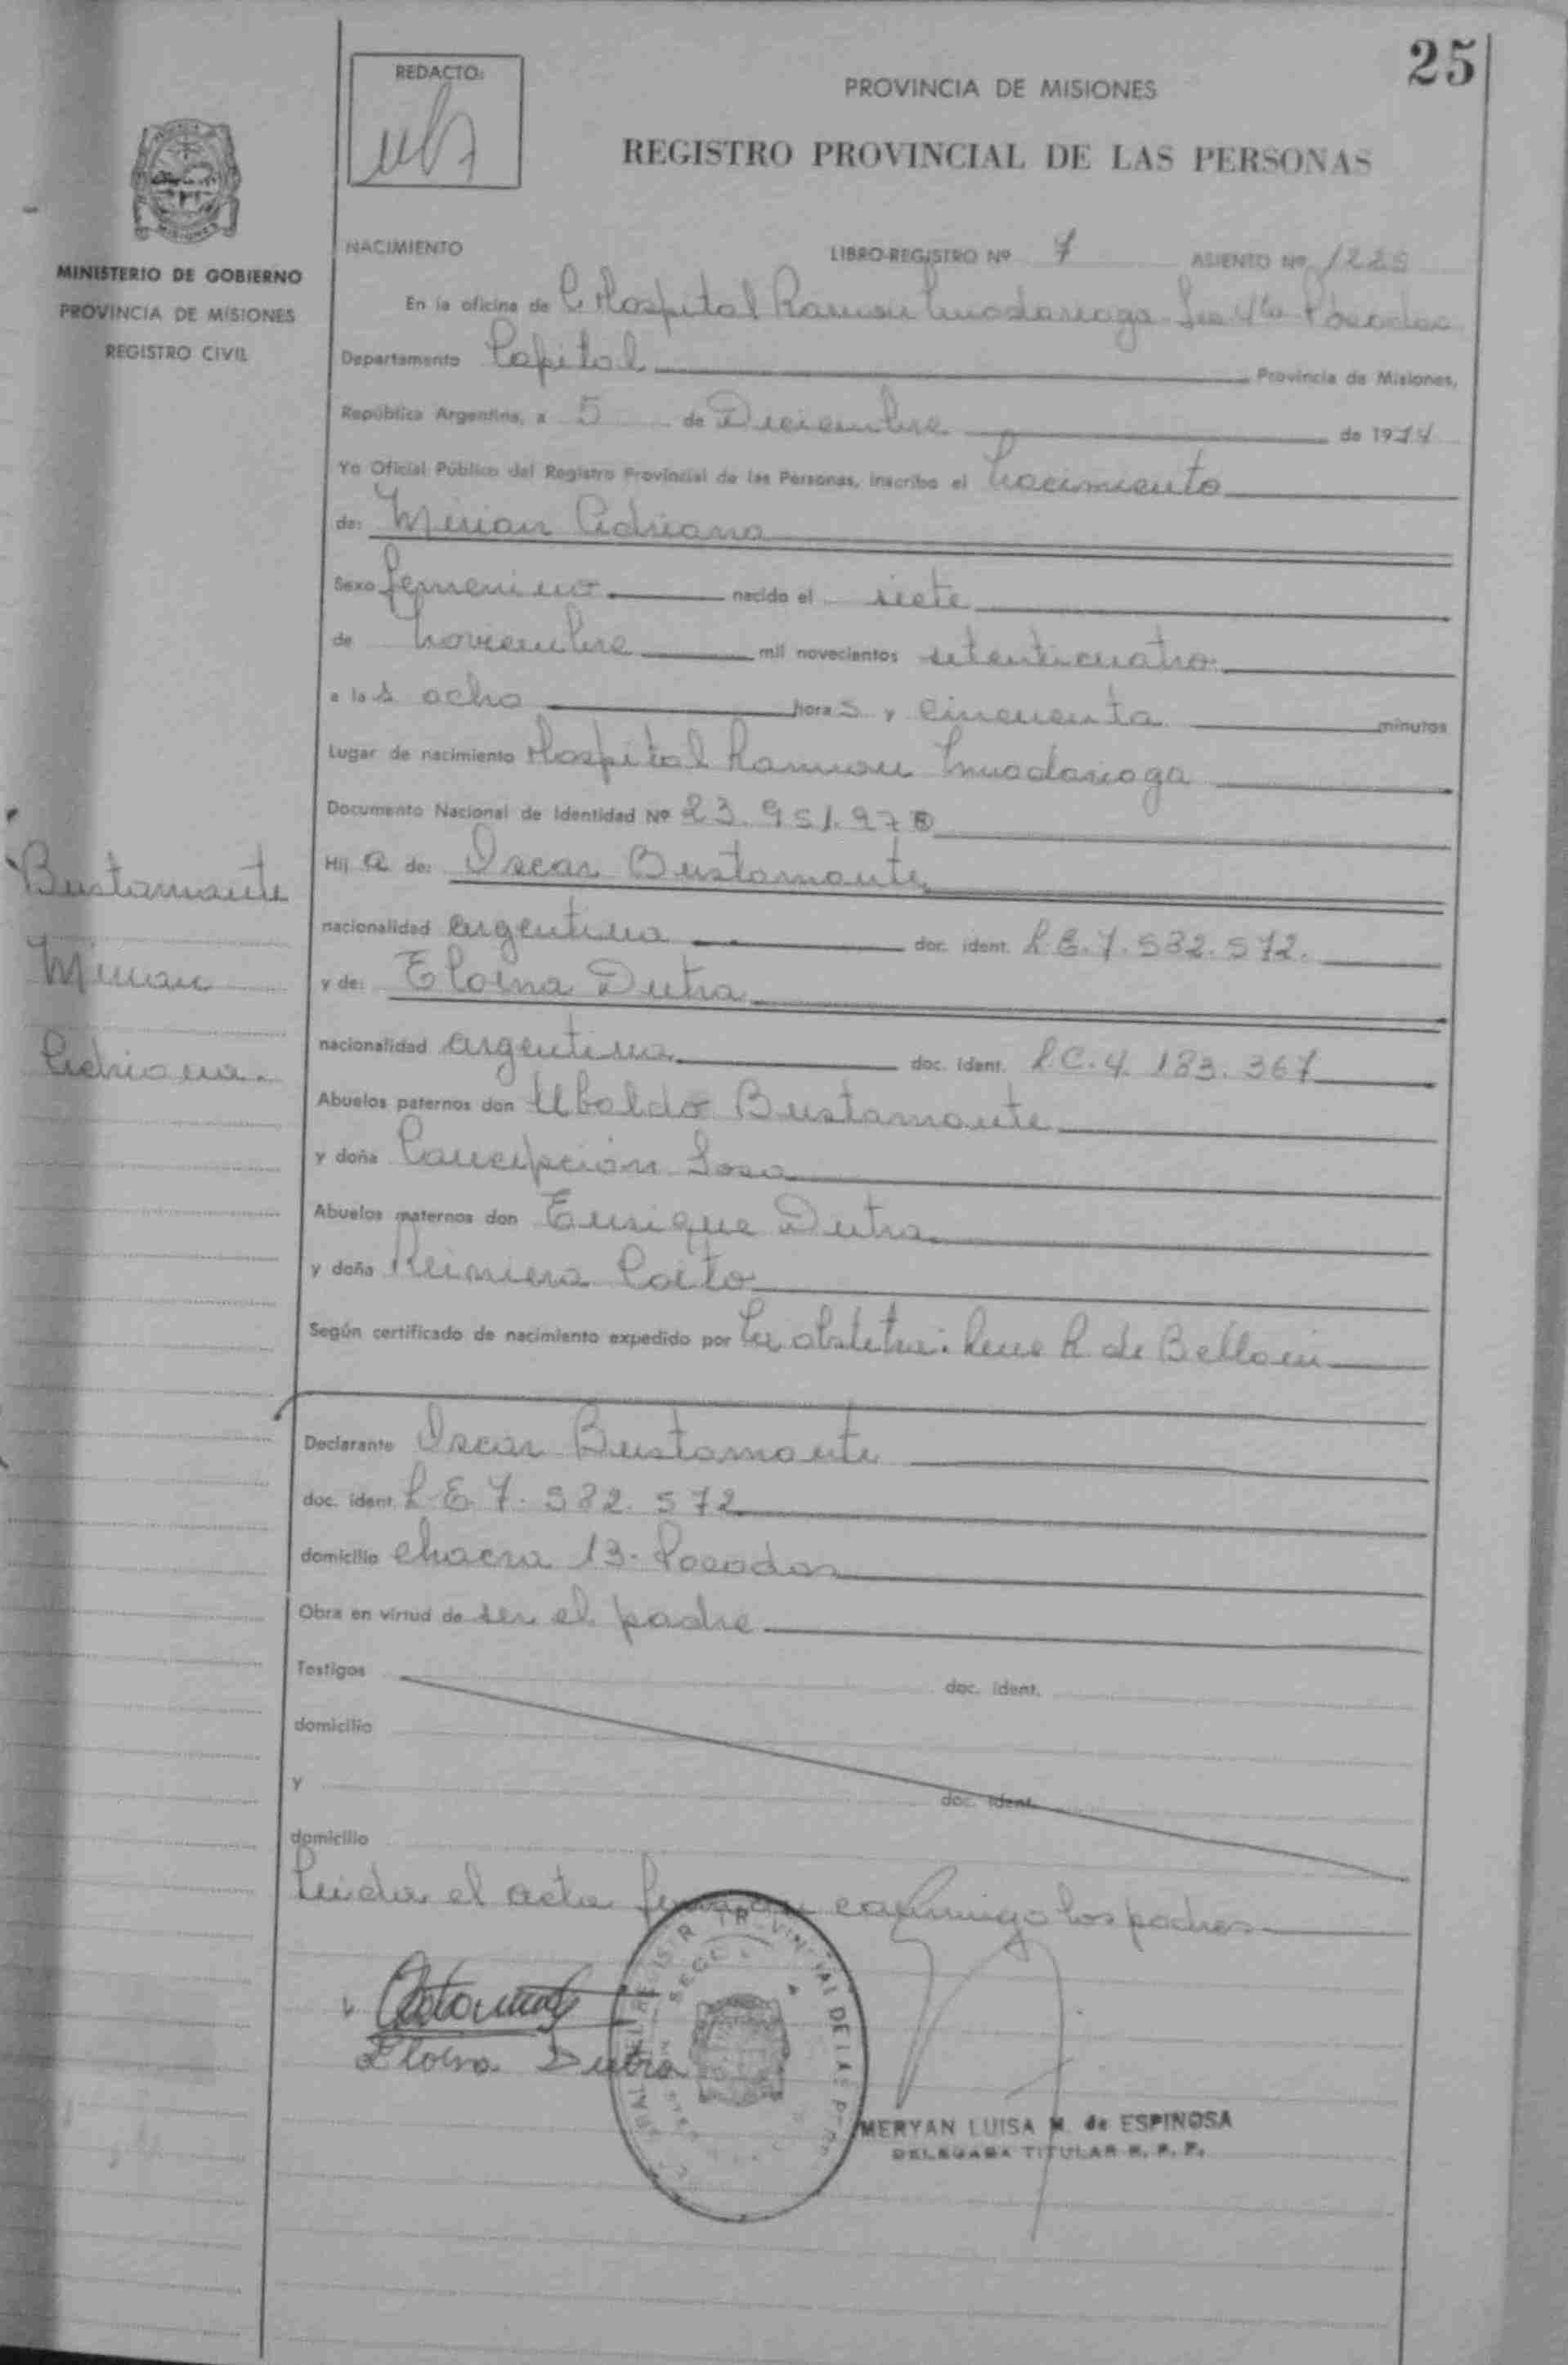 25
REDACTO:
PROVINCIA DE MISIONES
REGISTRO PROVINCIAL DE LAS PERSONAS
MINISTERIO DE GOBIERNO
PROVINCIA DE MISIONES
REGISTRO CIVIL
NACIMIENTO LIBRO-REGISTRO Nº 7 ASIENTO Nº 1225
En la oficina de Hospital Ramon Madariaga Posadas
Departamento Capital Provincia de Misiones,
República Argentina, a 5 de Diciembre de 1974
Yo Oficial Público del Registro Provincial de las Personas, inscribo el nacimiento
de: Mirian Adriana
Sexo femenino nacido el siete
de noviembre mil novecientos setenticuatro
a las ocho horas y cincuenta minutos
Lugar de nacimiento Hospital Ramon Madariaga
Documento Nacional de Identidad Nº 23.951.978
Hija de: Oscar Bustamante
nacionalidad argentina doc. ident. L.E.7.582.572.
y de: Eloina Dutra
nacionalidad argentina doc. ident. L.C.4.183.367
Abuelos paternos don Ubaldo Bustamante
y doña Concepción Sosa
Abuelos maternos don Enrique Dutra
y doña
Según certificado de nacimiento expedido por la obstetra: R. de Belloni
Bustamante
Mirian
Adriana.
Declarante Oscar Bustamante
doc. ident. L.E.7.582.572
domicilio chacra 13. Posadas
Obra en virtud de ser el padre
Testigos doc. ident.
domicilio
y doc. ident.
domicilio
Leida el acta firman conmigo los padres
Eloina Dutra
MERYAN LUISA M. de ESPINOSA
DELEGADA TITULAR R. P. P.